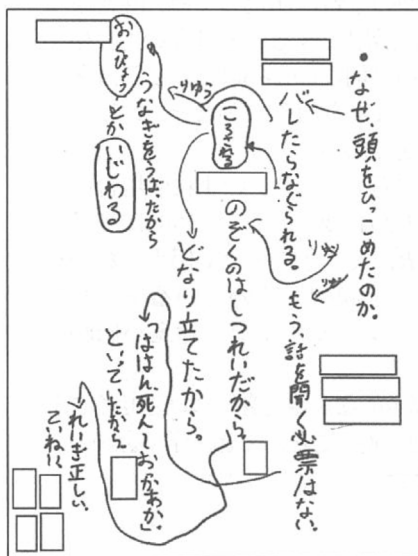 ・なぜ、頭をひっこめたのか。
バレたらなぐられる。
りゆう
もう、話を聞く必票はない。
りゆう
ころされる
のぞくのはしつれいだから。
りゆう
どなり立てたから。
うなぎをうばったから
おくびょうとかいじわる
「ははん、死んでおかあか」
といていたから。
れいぎ正しい。
ていねい、